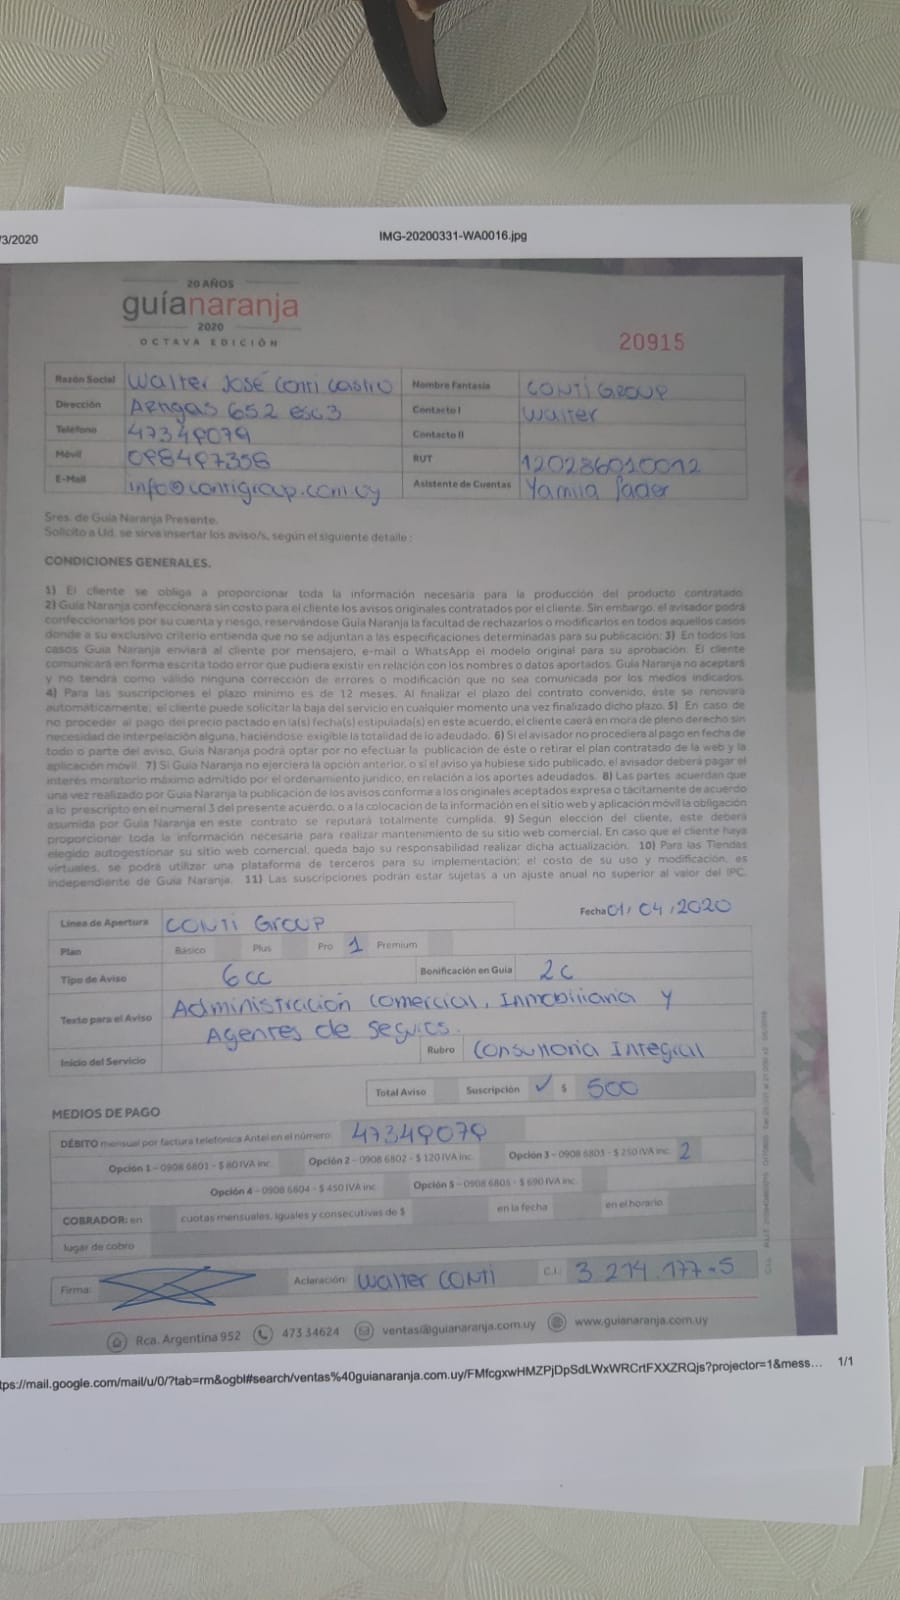 /3/2020 IMG-20200331-WA0016.jpg
20 AÑOS
guíanaranja
2020
OCTAVA EDICIÓN
20915
Razón Social Walter José Conti Castro Nombre Fantasía CONTI GROUP
Dirección Artigas 652 esc 3 Contacto I Walter
Teléfono 47349079 Contacto II
Móvil 098497358 RUT 120286010012
E-Mail info@contigroup.com.uy Asistente de Cuentas Yamila Sader
Sres. de Guía Naranja Presente.
Solicito a Ud. se sirva insertar los aviso/s, según el siguiente detalle:
CONDICIONES GENERALES.
1) El cliente se obliga a proporcionar toda la información necesaria para la producción del producto contratado.
2) Guía Naranja confeccionará sin costo para el cliente los avisos originales contratados por el cliente. Sin embargo, el avisador podrá
confeccionarlos por su cuenta y riesgo, reservándose Guía Naranja la facultad de rechazarlos o modificarlos en todos aquellos casos
donde a su exclusivo criterio entienda que no se adjuntan a las especificaciones determinadas para su publicación; 3) En todos los
casos Guía Naranja enviará al cliente por mensajero, e-mail o WhatsApp el modelo original para su aprobación. El cliente
comunicará en forma escrita todo error que pudiera existir en relación con los nombres o datos aportados. Guía Naranja no aceptará
y no tendrá como válido ninguna corrección de errores o modificación que no sea comunicada por los medios indicados.
4) Para las suscripciones el plazo mínimo es de 12 meses. Al finalizar el plazo del contrato convenido, éste se renovará
automáticamente; el cliente puede solicitar la baja del servicio en cualquier momento una vez finalizado dicho plazo. 5) En caso de
no proceder al pago del precio pactado en la(s) fecha(s) estipulada(s) en este acuerdo, el cliente caerá en mora de pleno derecho sin
necesidad de interpelación alguna, haciéndose exigible la totalidad de lo adeudado. 6) Si el avisador no procediera al pago en fecha de
todo o parte del aviso, Guía Naranja podrá optar por no efectuar la publicación de éste o retirar el plan contratado de la web y la
aplicación móvil. 7) Si Guía Naranja no ejerciera la opción anterior, o si el aviso ya hubiese sido publicado, el avisador deberá pagar el
interés moratorio máximo admitido por el ordenamiento jurídico, en relación a los aportes adeudados. 8) Las partes acuerdan que
una vez realizado por Guía Naranja la publicación de los avisos conforme a los originales aceptados expresa o tácitamente de acuerdo
a lo prescripto en el numeral 3 del presente acuerdo, o a la colocación de la información en el sitio web y aplicación móvil la obligación
asumida por Guía Naranja en este contrato se reputará totalmente cumplida. 9) Según elección del cliente, este deberá
proporcionar toda la información necesaria para realizar mantenimiento de su sitio web comercial. En caso que el cliente haya
elegido autogestionar su sitio web comercial, queda bajo su responsabilidad realizar dicha actualización. 10) Para las Tiendas
virtuales, se podrá utilizar una plataforma de terceros para su implementación; el costo de su uso y modificación, es
independiente de Guía Naranja. 11) Las suscripciones podrán estar sujetas a un ajuste anual no superior al valor del IPC.
Fecha 01/04/2020
Línea de Apertura CONTI GROUP
Plan Básico Plus Pro 1 Premium
Tipo de Aviso 6cc Bonificación en Guía 2c
Texto para el Aviso Administración comercial, Inmobiliaria y
Agentes de seguros.
Inicio del Servicio Rubro Consultoria Integral
Total Aviso Suscripción ✓ $ 500
MEDIOS DE PAGO
DÉBITO mensual por factura telefónica Antel en el número: 47349079
Opción 1 - 0908 6801 - $ 80 IVA inc. Opción 2 - 0908 6802 - $ 120 IVA inc. Opción 3 - 0908 6803 - $ 250 IVA inc. 2
Opción 4 - 0908 6804 - $ 450 IVA inc. Opción 5 - 0908 6805 - $ 690 IVA inc.
COBRADOR: en cuotas mensuales, iguales y consecutivas de $ en la fecha en el horario
lugar de cobro
Firma: Aclaración: Walter CONTI C.I.: 3.214.177-5
Rca. Argentina 952 473 34624 ventas@guianaranja.com.uy www.guianaranja.com.uy
tps://mail.google.com/mail/u/0/?tab=rm&ogbl#search/ventas%40guianaranja.com.uy/FMfcgxwHMZPjDpSdLWxWRCrtFXXZRQjs?projector=1&mess... 1/1